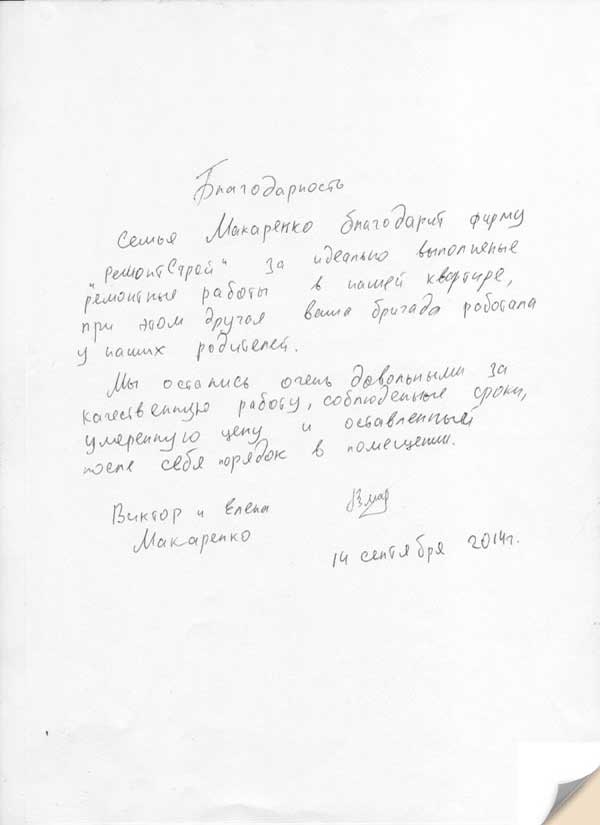 Благодарность
Семья Макаренко благодарит фирму
"РемонтСтрой" за идеально выполненые
ремонтные работы в нашей квартире,
при этом другая ваша бригада работала
у наших родителей.
Мы остались очень довольными за
качественную работу, соблюденные сроки,
умеренную цену и оставленный
после себя порядок в помещении.
Виктор и Елена
Макаренко
14 сентября 2014г.